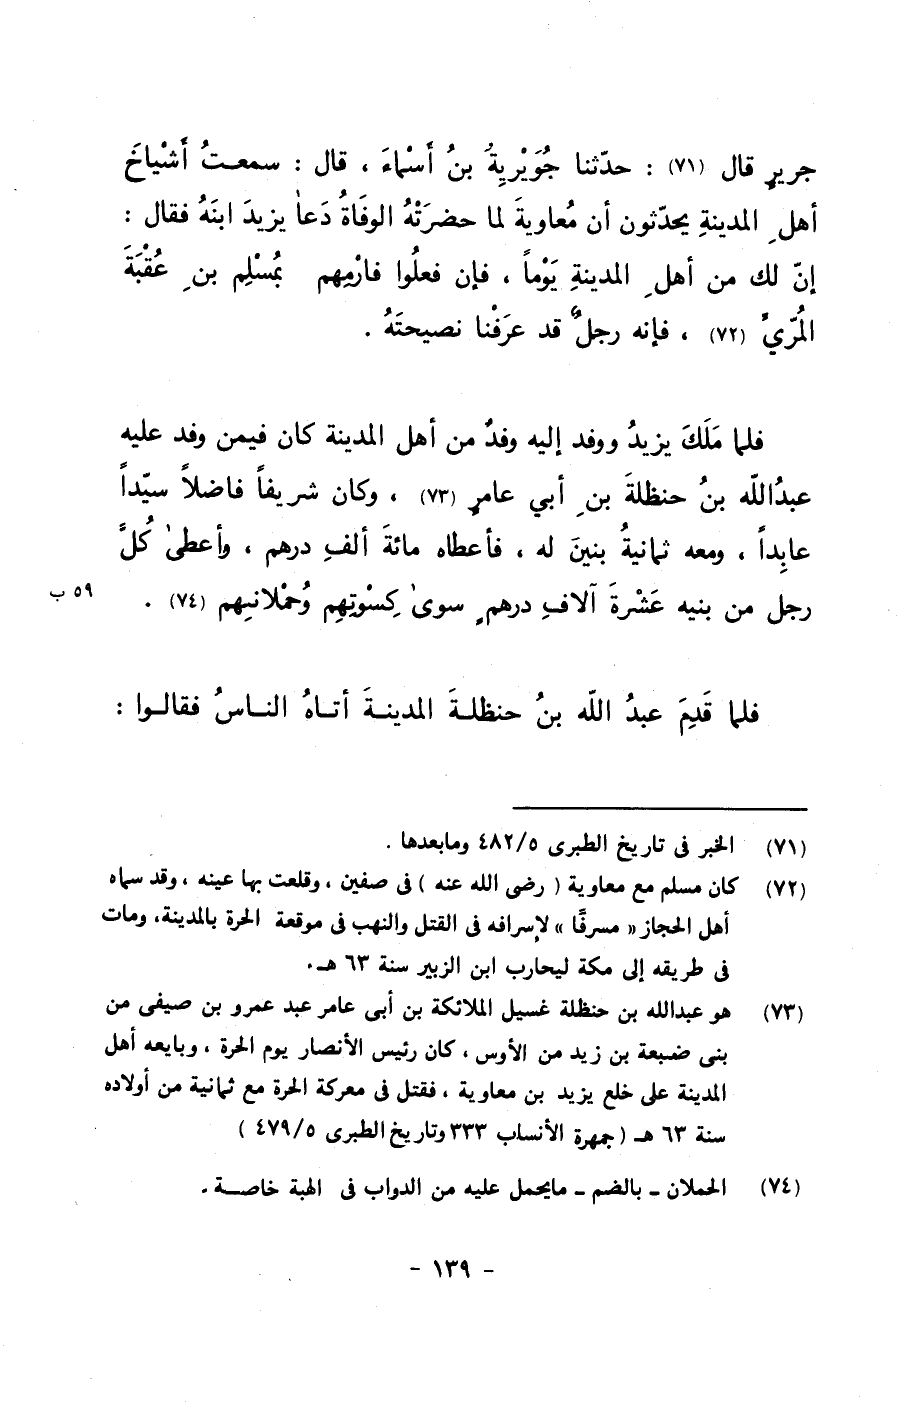 جريرٍ قال (٧١) : حدّثنا جُوَيْرِيةُ بنُ أَسْماءَ ، قال : سمعتُ أَشْياخَ
أهلِ المدينةِ يحدّثون أن مُعاويةَ لما حضرَتْهُ الوفَاةُ دَعا يزيدَ ابنَهُ فقال :
إنّ لك من أهلِ المدينةِ يَوْماً ، فإن فعلُوا فارْمِهم بمُسْلِم بنِ عُقْبَةَ
المُرّيّ (٧٢) ، فإنه رجلٌ قد عرَفْنا نصيحتَهُ .
فلما مَلَكَ يزيدُ ووفد إليه وفدٌ من أهل المدينة كان فيمن وفد عليه
عبدُاللّه بنُ حنظلةَ بنِ أبي عامرٍ (٧٣) ، وكان شريفاً فاضلاً سيّداً
عابِداً ، ومعه ثمانيةُ بنينَ له ، فأعطاه مائةَ ألفِ درهم ، وأعطىٰ كُلَّ
رجل من بنيه عَشْرةَ آلافِ درهمٍ سوىٰ كِسْوتِهِم وحُمْلانِهم (٧٤) .
٥٩ ب
فلما قَدِمَ عبدُ اللّه بنُ حنظلـةَ المدينـةَ أتـاهُ النـاسُ فقالـوا :
(٧١) الخبر فى تاريخ الطبرى ٤٨٢/٥ ومابعدها .
(٧٢) كان مسلم مع معاوية ( رضى الله عنه ) فى صفين ، وقلعت بها عينه ، وقد سماه
أهل الحجاز « مسرفًا » لإسرافه فى القتل والنهب فى موقعة الحرة بالمدينة، ومات
فى طريقه إلى مكة ليحارب ابن الزبير سنة ٦٣ هـ.
(٧٣) هو عبدالله بن حنظلة غسيل الملائكة بن أبى عامر عبد عمرو بن صيفى من
بنى ضبيعة بن زيد من الأوس ، كان رئيس الأنصار يوم الحرة ، وبايعه أهل
المدينة على خلع يزيد بن معاوية ، فقتل فى معركة الحرة مع ثمانية من أولاده
سنة ٦٣ هـ ( جمهرة الأنساب ٣٣٣ وتاريخ الطبرى ٤٧٩/٥ )
(٧٤) الحملان ـ بالضم ـ مايحمل عليه من الدواب فى الهبة خاصـــة .
- ١٣٩ -